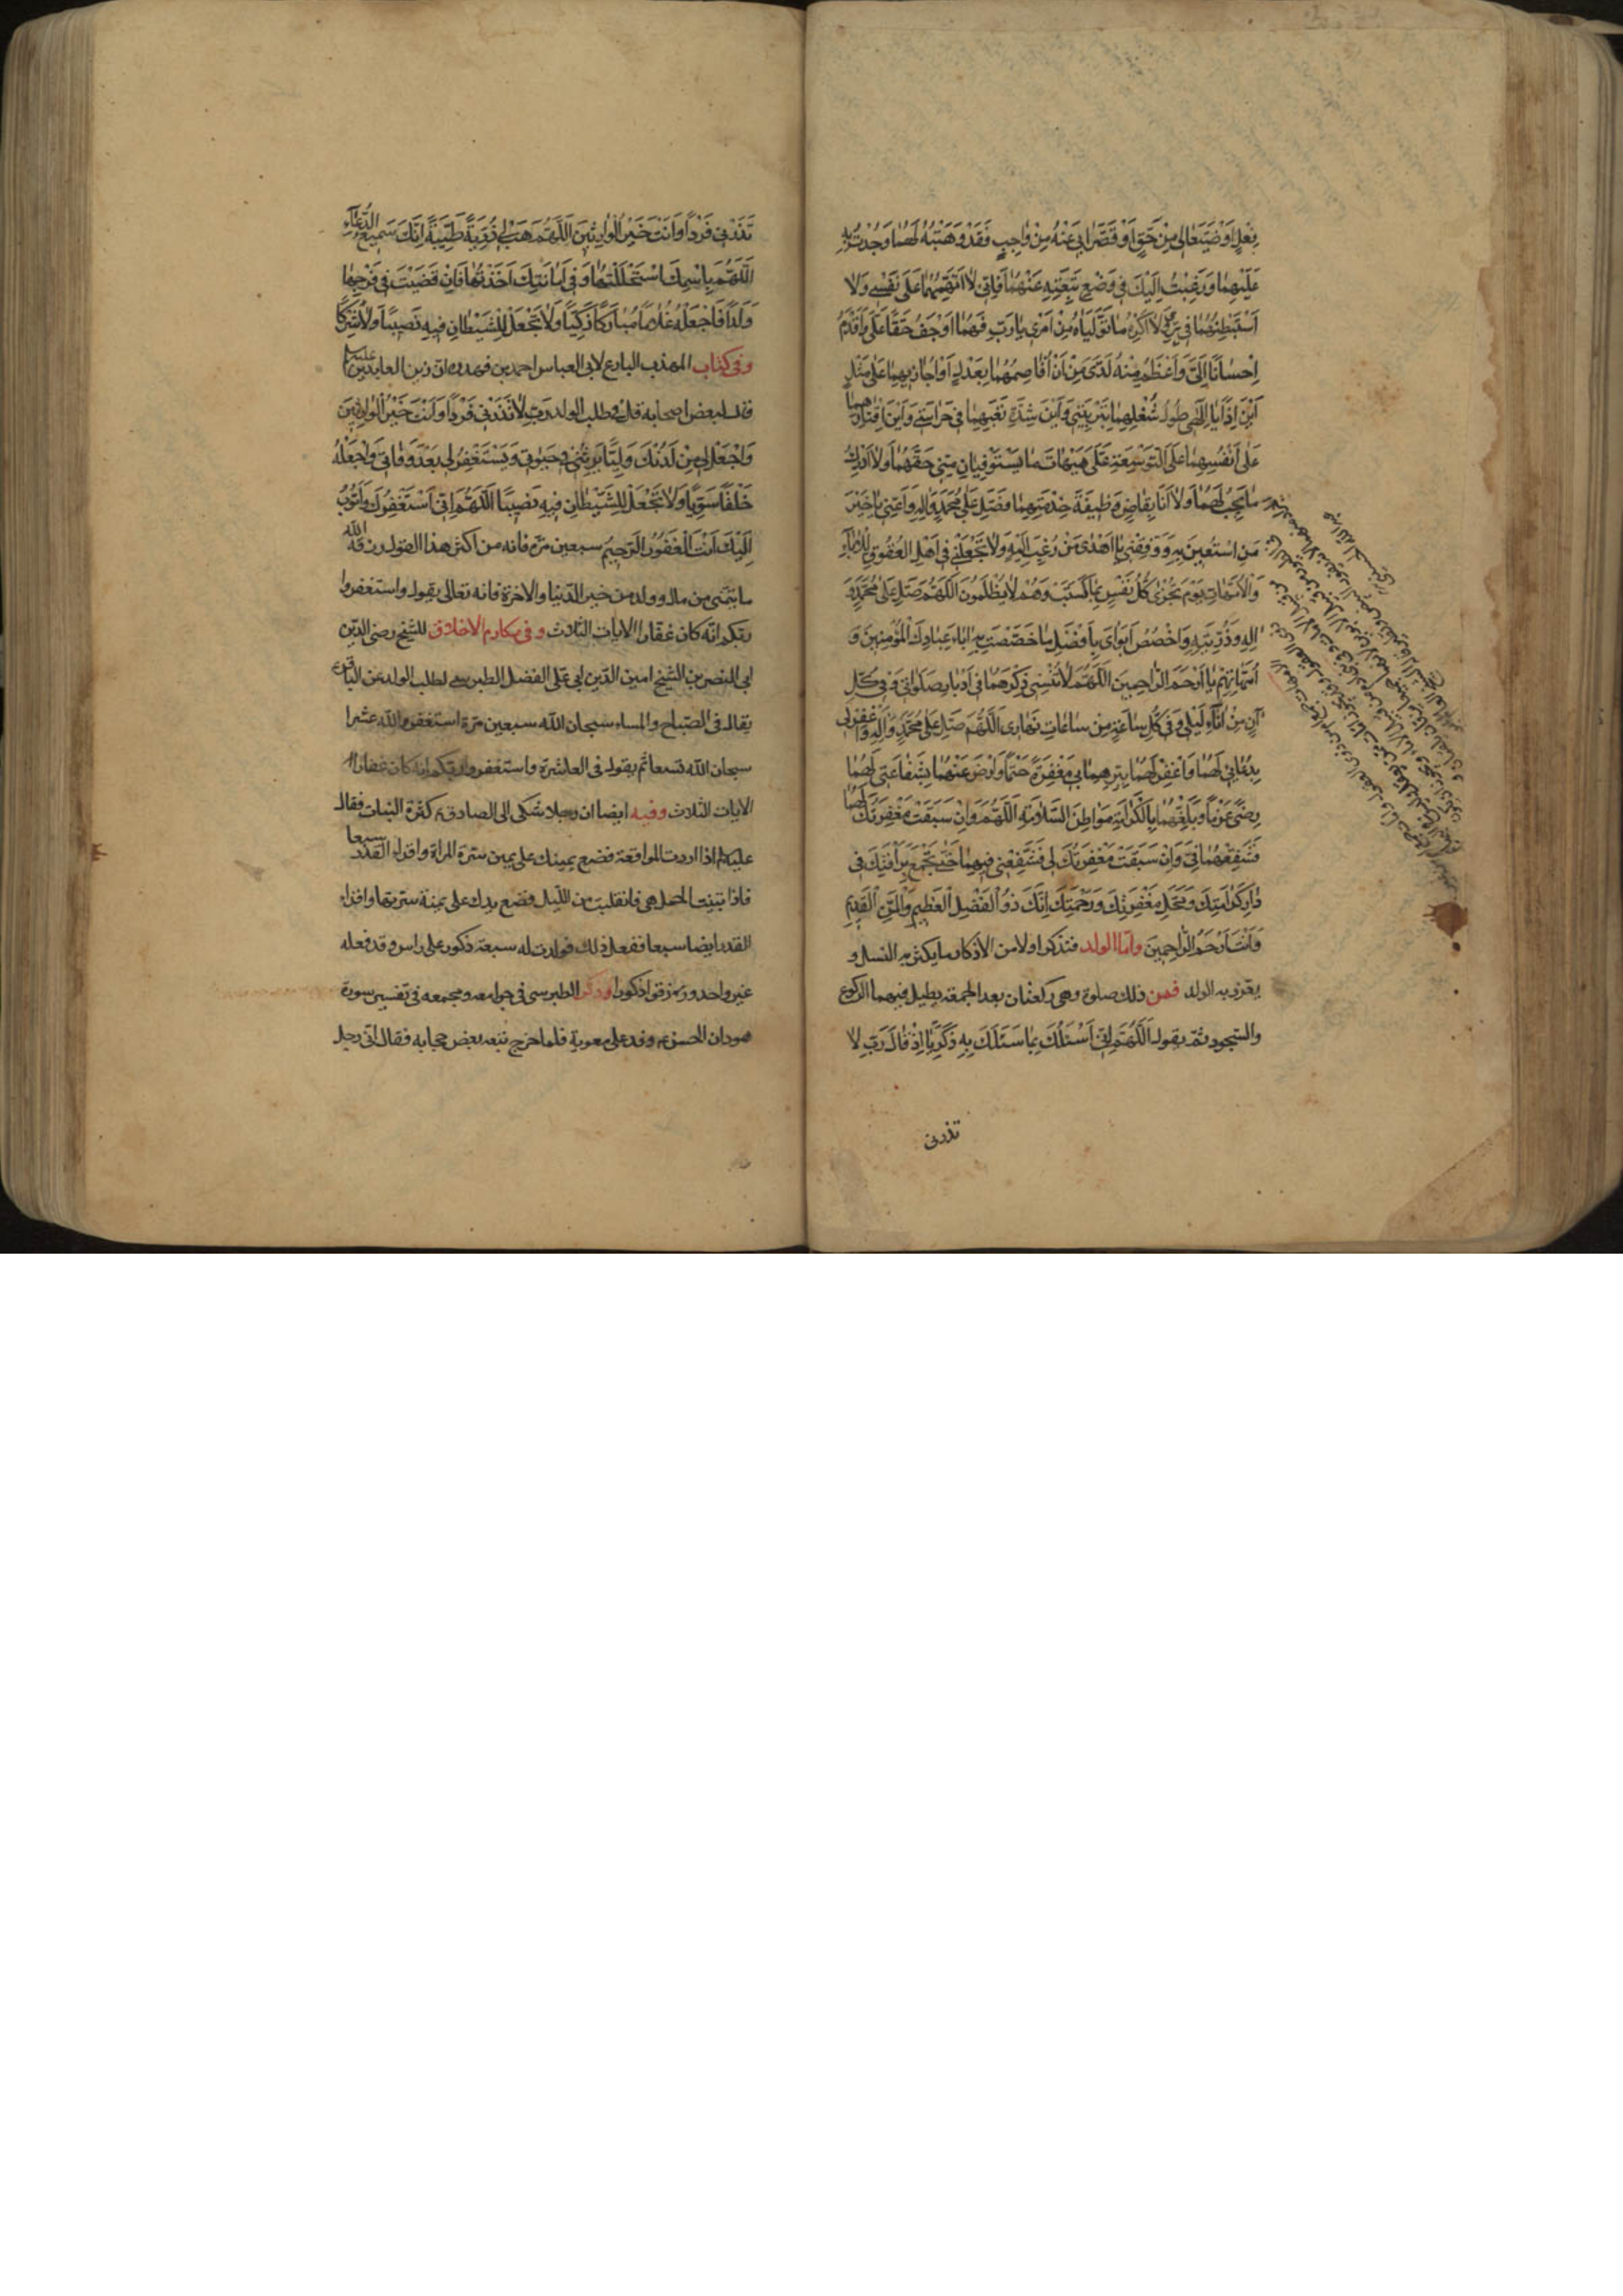 فِعْلٍ اَوْ ضَيَّعَا لي مِنْ حَقٍّ اَوْ قَصَّرَا بي عَنْهُ مِنْ وَاجِبٍ فَقَدْ وَهَبْتُهُ لَهُمَا وَجُدْتُ بِهِ
عَلَيْهِمَا وَرَغِبْتُ اِلَيْكَ فِي وَضْعِ تَبِعَتِهِ عَنْهُمَا فَاِنّي لَا اَتَّهِمُهُمَا عَلَى نَفْسي وَلَا
اَسْتَبْطِئُهُمَا في بِرّي وَلَا اَكْرَهُ مَا تَوَلَّيَاهُ مِنْ اَمْري يَا رَبِّ فَهُمَا اَوْجَبُ حَقًّا عَلَيَّ وَاَقْدَمُ
اِحْسَانًا اِلَيَّ وَاَعْظَمُ مِنَّةً لَدَيَّ مِنْ اَنْ اُقَاصَّهُمَا بِعَدْلٍ اَوْ اُجَازِيَهُمَا عَلَى مِثْلٍ
اَيْنَ اِذًا يَا اِلٰهي طُولُ شُغْلِهِمَا بِتَرْبِيَتي وَاَيْنَ شِدَّةُ تَعَبِهِمَا في حِرَاسَتي وَاَيْنَ اِقْتَارُهُمَا
عَلَى اَنْفُسِهِمَا عَلَى التَّوْسِعَةِ عَلَيَّ هَيْهَاتَ مَا يَسْتَوْفِيَانِ مِنّي حَقَّهُمَا وَلَا اُدْرِكُ
مَا يَجِبُ لَهُمَا وَلَا اَنَا بِقَاضٍ وَظيفَةَ خِدْمَتِهِمَا فَصَلِّ عَلَى مُحَمَّدٍ وَآلِهِ وَاَعِنّي يَا خَيْرَ
مَنِ اسْتُعينَ بِهِ وَوَفِّقْني يَا اَهْدَى مَنْ رُغِبَ اِلَيْهِ وَلَا تَجْعَلْني في اَهْلِ الْعُقُوقِ لِلْآبَاءِ
وَالْاُمَّهَاتِ يَوْمَ تُجْزَى كُلُّ نَفْسٍ بِمَا كَسَبَتْ وَهُمْ لَا يُظْلَمُونَ اَللّٰهُمَّ صَلِّ عَلَى مُحَمَّدٍ وَ
آلِهِ وَذُرِّيَّتِهِ وَاخْصُصْ اَبَوَايَ بِاَفْضَلِ مَا خَصَصْتَ بِهِ آبَاءَ عِبَادِكَ الْمُؤْمِنينَ وَ
اُمَّهَاتِهِمْ يَا اَرْحَمَ الرَّاحِمينَ اَللّٰهُمَّ لَا تُنْسِني ذِكْرَهُمَا في اَدْبَارِ صَلَوَاتي وَفي كُلِّ
آنٍ مِنْ آنَاءِ لَيْلي وَفي كُلِّ سَاعَةٍ مِنْ سَاعَاتِ نَهَاري اَللّٰهُمَّ صَلِّ عَلَى مُحَمَّدٍ وَآلِهِ وَاغْفِرْ لي
بِدُعَائي لَهُمَا وَاغْفِرْ لَهُمَا بِبِرِّهِمَا بي مَغْفِرَةً حَتْمًا وَارْضَ عَنْهُمَا بِشَفَاعَتي لَهُمَا
رِضًى عَزْمًا وَبَلِّغْهُمَا بِالْكَرَامَةِ مَوَاطِنَ السَّلَامَةِ اَللّٰهُمَّ وَاِنْ سَبَقَتْ مَغْفِرَتُكَ لَهُمَا
فَشَفِّعْهُمَا فِيَّ وَاِنْ سَبَقَتْ مَغْفِرَتُكَ لي فَشَفِّعْني فيهِمَا حَتّٰى نَجْتَمِعَ بِرَأْفَتِكَ في
دَارِ كَرَامَتِكَ وَمَحَلِّ مَغْفِرَتِكَ وَرَحْمَتِكَ اِنَّكَ ذُو الْفَضْلِ الْعَظيمِ وَالْمَنِّ الْقَديمِ
وَاَنْتَ اَرْحَمُ الرَّاحِمينَ وامّا الولد فنذكر اولا من الاذكار ما يكثر به النسل و
يعزز به الولد فمن ذلك صلوة وهي ركعتان بعد الجمعة يطيل فيهما الركوع
والسجود ثمّ يقول اَللّٰهُمَّ اِنّي اَسْئَلُكَ بِمَا سَئَلَكَ بِهِ زَكَرِيَّا اِذْ قَالَ رَبِّ لَا
تذرني
تَذَرْني فَرْدًا وَاَنْتَ خَيْرُ الْوَارِثينَ اَللّٰهُمَّ هَبْ لي ذُرِّيَّةً طَيِّبَةً اِنَّكَ سَميعُ الدُّعَاءِ
اَللّٰهُمَّ بِاسْمِكَ اسْتَحْلَلْتُهَا وَفي اَمَانَتِكَ اَخَذْتُهَا فَاِنْ قَضَيْتَ في فَرْجِهَا
وَلَدًا فَاجْعَلْهُ غُلَامًا مُبَارَكًا زَكِيًّا وَلَا تَجْعَلْ لِلشَّيْطَانِ فيهِ نَصيبًا وَلَا شِرْكًا
وفي كتاب المهذب البارع لابي العباس احمد بن فهد ره ان زين العابدين عليه السلم
قال لبعض اصحابه قل في طلب الولد رَبِّ لَا تَذَرْني فَرْدًا وَاَنْتَ خَيْرُ الْوَارِثينَ
وَاجْعَلْ لي مِنْ لَدُنْكَ وَلِيًّا يَرِثُني في حَيٰوتي وَيَسْتَغْفِرُ لي بَعْدَ وَفَاتي وَاجْعَلْهُ
خَلْقًا سَوِيًّا وَلَا تَجْعَلْ لِلشَّيْطَانِ فيهِ نَصيبًا اَللّٰهُمَّ اِنّي اَسْتَغْفِرُكَ وَاَتُوبُ
اِلَيْكَ اَنْتَ الْغَفُورُ الرَّحيمُ سبعين مرّة فانه من اكثر هذا القول رزقه الله
ما يتمنى من مال و ولد من خير الدّنيا والاخرة فانه تعالى يقول واستغفروا
ربكم انّه كان غفارا الايات الثلاث وفي مكارم الاخلاق للشيخ رضي الدّين
ابي النصر بن الشيخ امين الدّين ابي علي الفضل الطبرسي لطلب الولد عن الباقر ع
يقال في الصّباح والمساء سبحان الله سبعين مرّة استغفر الله عشرا
سبحان الله تسعا ثم يقول في العاشرة واستغفروا ربكم انه كان غفارا
الايات الثلاث وفيه ايضا ان رجلا شكى الى الصادق ع كثرة البنات فقال
عليكم اذا اردت المواقعة فضع يمينك على يمين سترة المراة واقراء القدر سبعا
فاذا تبينت الحمل هي فانقلبت من الليل فضع يدك على يمنة سرتها واقراء
القدر ايضا سبعا ففعل ذلك فولدت له سبعة ذكور على راس وقد فعله
غير واحد ورزقوا ذكورا وذكر الطبرسي في جوامعه ومجمعه في تفسير سورة
هود ان الحسن ع وفد على معوية فلما خرج تبعه بعض حجابه فقال اني رجل